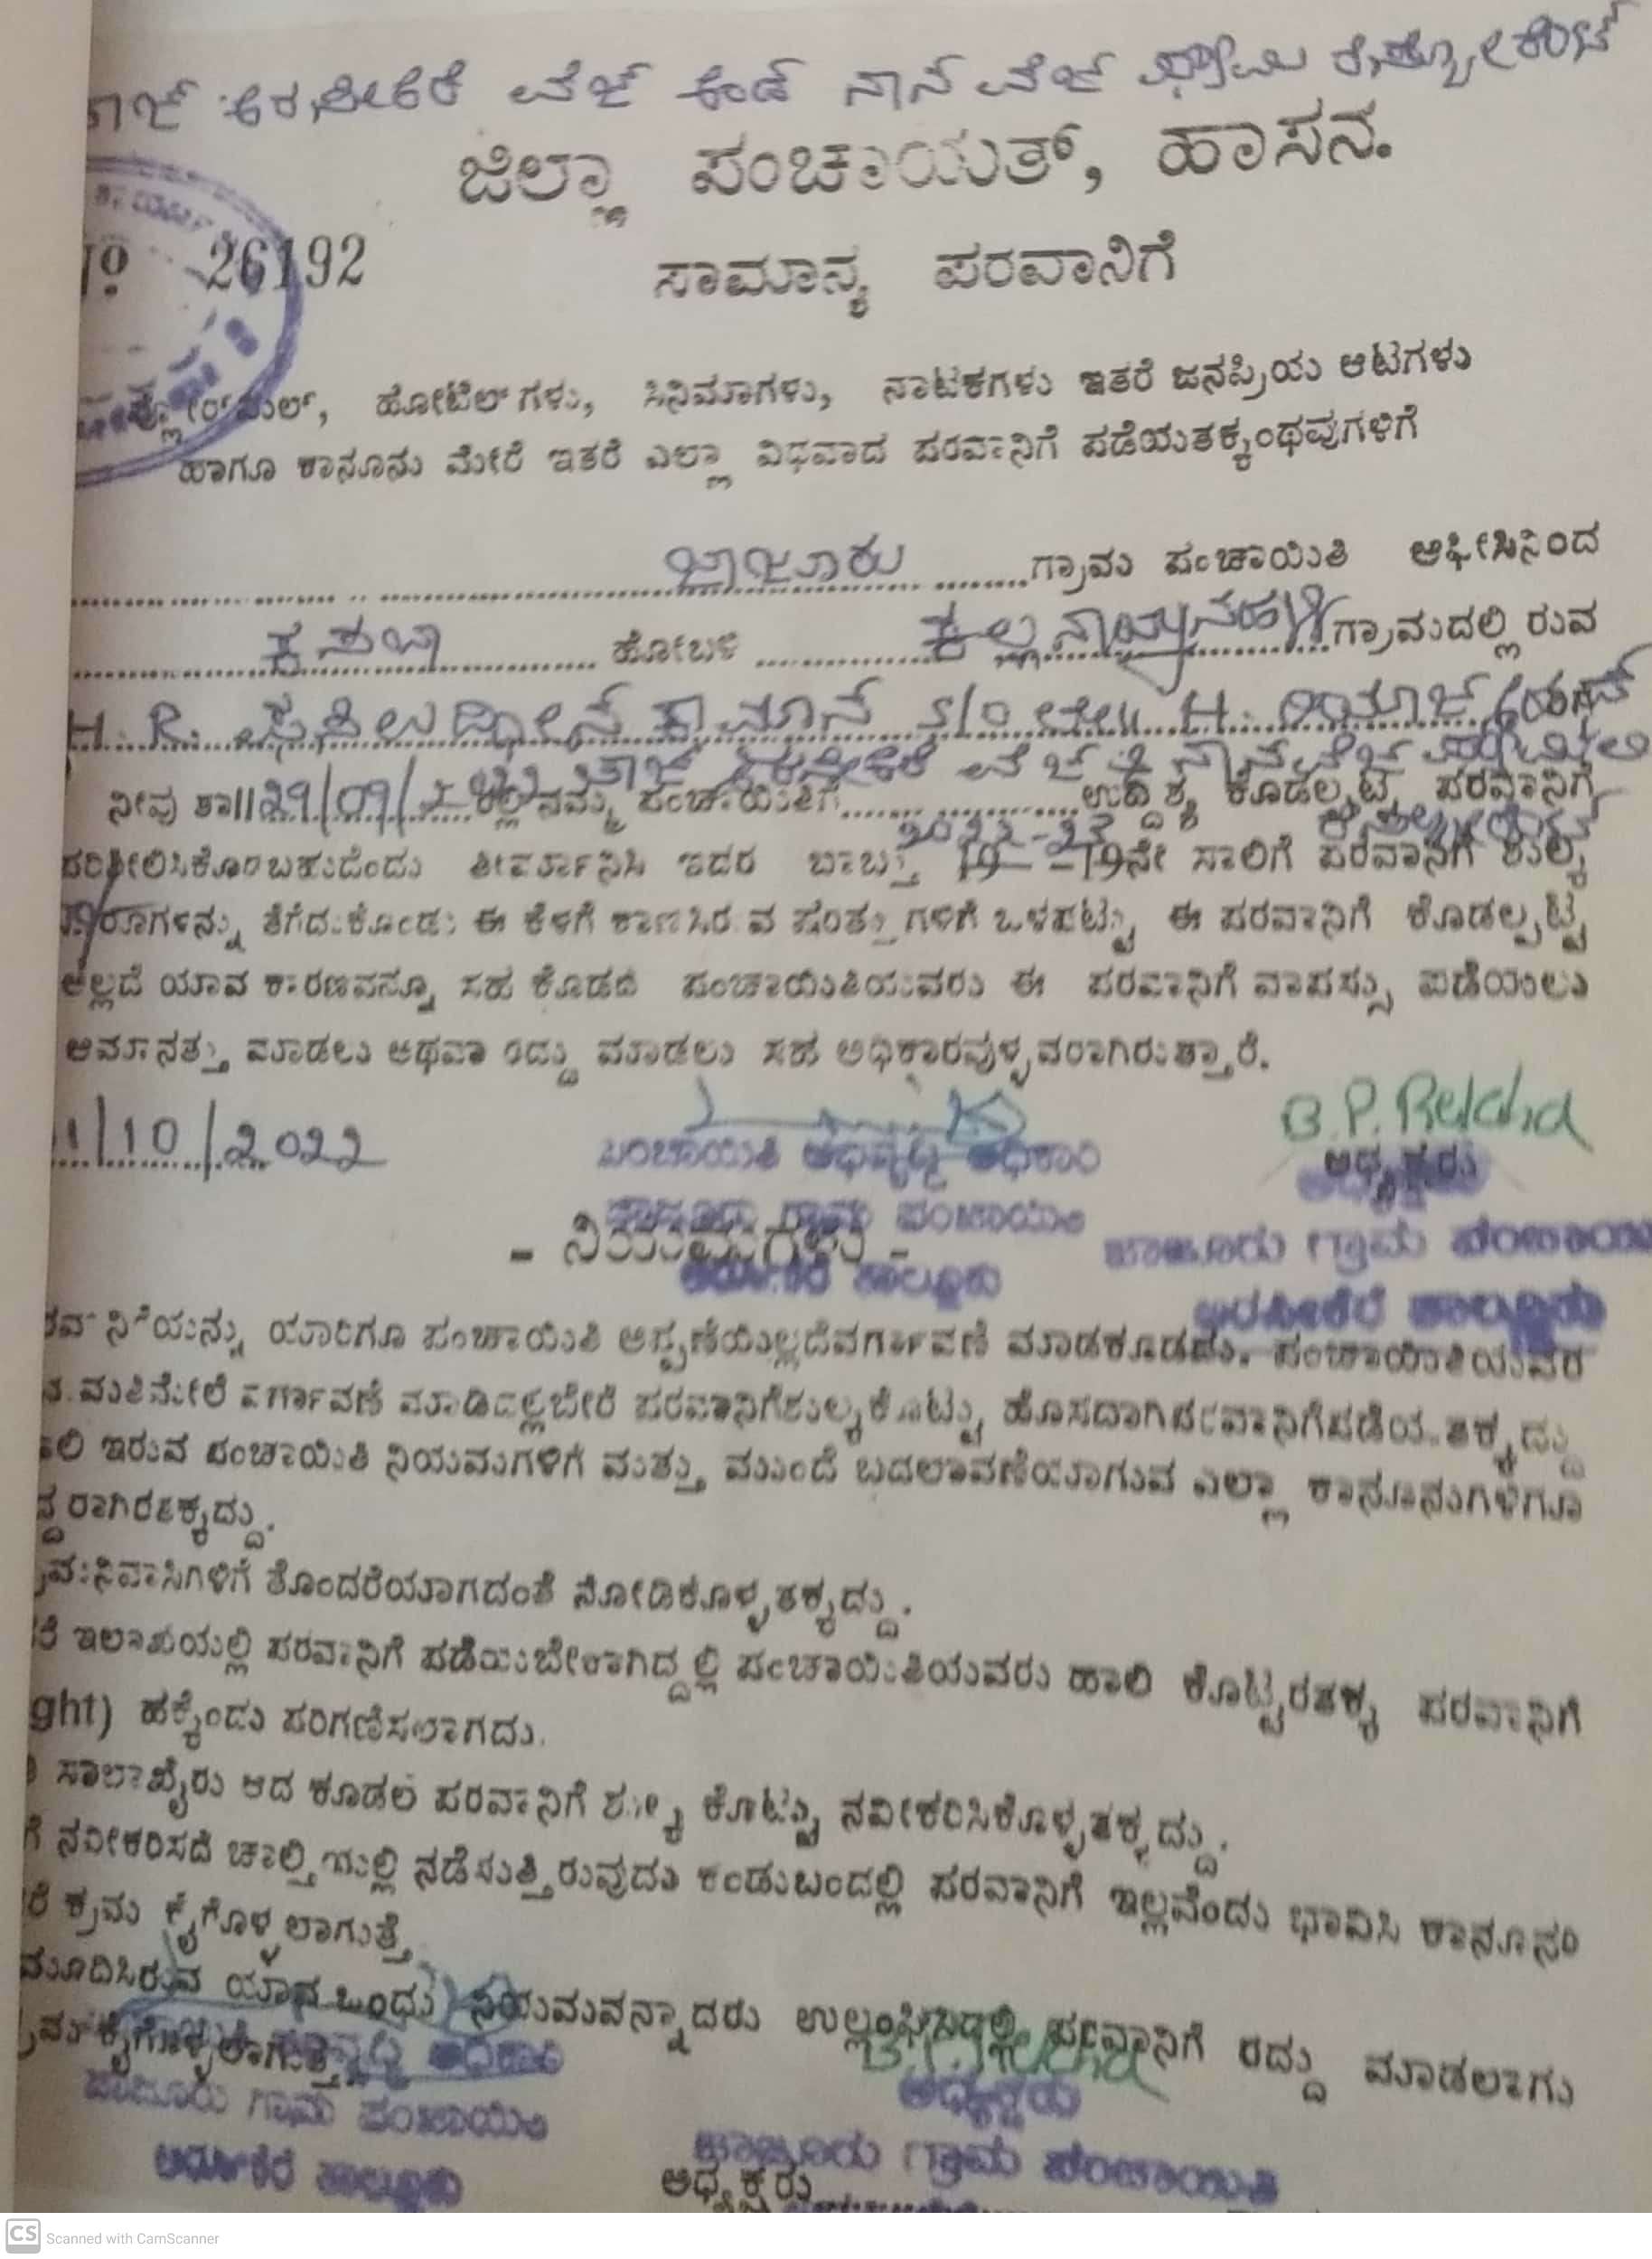 ತಾಜ್ ಅರಸೀಕೆರೆ ವೆಜ್ ಅಂಡ್ ನಾನ್ ವೆಜ್ ಫ್ಯಾಮಿಲಿ ರೆಸ್ಟೋರೆಂಟ್
ಜಿಲ್ಲಾ ಪಂಚಾಯತ್, ಹಾಸನ.
No 26192
ಸಾಮಾನ್ಯ ಪರವಾನಿಗೆ
ಹೋಟೆಲ್‌ಗಳು, ಸಿನಿಮಾಗಳು, ನಾಟಕಗಳು ಇತರೆ ಜನಪ್ರಿಯ ಆಟಗಳು
ಹಾಗೂ ಕಾನೂನು ಮೇರೆ ಇತರೆ ಎಲ್ಲಾ ವಿಧವಾದ ಪರವಾನಿಗೆ ಪಡೆಯತಕ್ಕಂಥವುಗಳಿಗೆ
ಜಾಜೂರು ಗ್ರಾಮ ಪಂಚಾಯಿತಿ ಆಫೀಸಿನಿಂದ
ಕಸಬಾ ಹೋಬಳಿ ಕಲ್ಲನಾಯ್ಕನಹಳ್ಳಿ ಗ್ರಾಮದಲ್ಲಿರುವ
H. R. ಕಾಮಾನ್ S/o ಲೇ|| H.
ತಾಜ್ ಅರಸೀಕೆರೆ ವೆಜ್ & ನಾನ್ ವೆಜ್ ಫ್ಯಾಮಿಲಿ
ನೀವು ತಾ||29/09/ ರಲ್ಲಿ ನಮ್ಮ ಪಂಚಾಯಿತಿಗೆ ಉದ್ದಿಶ್ಯ ಕೊಡಲ್ಪಟ್ಟ ಪರವಾನಿಗೆ
ರೆಸ್ಟೋರೆಂಟ್
2022-23
ಪರಿಶೀಲಿಸಿಕೊಂಬಹುದೆಂದು ತೀರ್ಮಾನಿಸಿ ಇದರ ಬಾಬ್ತು 19 -19ನೇ ಸಾಲಿಗೆ ಪರವಾನಿಗೆ ಶುಲ್ಕ
ರೂಗಳನ್ನು ತೆಗೆದುಕೊಂಡು ಈ ಕೆಳಗೆ ಕಾಣಿಸಿರುವ ಷರತ್ತುಗಳಿಗೆ ಒಳಪಟ್ಟು ಈ ಪರವಾನಿಗೆ ಕೊಡಲ್ಪಟ್ಟಿ
ಅಲ್ಲದೆ ಯಾವ ಕಾರಣವನ್ನೂ ಸಹ ಕೊಡದೆ ಪಂಚಾಯಿತಿಯವರು ಈ ಪರವಾನಿಗೆ ವಾಪಸ್ಸು ಪಡೆಯಲು
ಅಮಾನತ್ತು ಮಾಡಲು ಅಥವಾ ರದ್ದು ಮಾಡಲು ಸಹ ಅಧಿಕಾರವುಳ್ಳವರಾಗಿರುತ್ತಾರೆ.
1/10/2022
B.P. Rekha
ಪಂಚಾಯಿತಿ ಅಭಿವೃದ್ಧಿ ಅಧಿಕಾರಿ
ಅಧ್ಯಕ್ಷರು
ಜಾಜೂರು ಗ್ರಾಮ ಪಂಚಾಯಿತಿ
ಜಾಜೂರು ಗ್ರಾಮ ಪಂಚಾಯಿ
- ನಿಯಮಗಳು -
ಅರಸೀಕೆರೆ ತಾಲ್ಲೂಕು
ಅರಸೀಕೆರೆ ತಾಲ್ಲೂಕು
ಯಾರಿಗೂ ಪಂಚಾಯಿತಿ ಅಪ್ಪಣೆಯಿಲ್ಲದೆವರ್ಗಾವಣೆ ಮಾಡಕೂಡದು. ಪಂಚಾಯಿತಿಯವರ
ಮತಿಮೇಲೆ ವರ್ಗಾವಣೆ ಮಾಡಿದಲ್ಲಿಬೇರೆ ಪರವಾನಿಗೆಶುಲ್ಕಕೊಟ್ಟು ಹೊಸದಾಗಿಪರವಾನಿಗೆಪಡೆಯತಕ್ಕದ್ದು
ಾಲಿ ಇರುವ ಪಂಚಾಯಿತಿ ನಿಯಮಗಳಿಗೆ ಮತ್ತು ಮುಂದೆ ಬದಲಾವಣೆಯಾಗುವ ಎಲ್ಲಾ ಕಾನೂನುಗಳಿಗೂ
ದ್ಧರಾಗಿರತಕ್ಕದ್ದು.
ನಿವಾಸಿಗಳಿಗೆ ತೊಂದರೆಯಾಗದಂತೆ ನೋಡಿಕೊಳ್ಳತಕ್ಕದ್ದು.
ರೆ ಇಲಾಖೆಯಲ್ಲಿ ಪರವಾನಿಗೆ ಪಡೆಯಬೇಕಾಗಿದ್ದಲ್ಲಿ ಪಂಚಾಯಿತಿಯವರು ಹಾಲಿ ಕೊಟ್ಟಿರತಕ್ಕ ಪರವಾನಿಗೆ
ght) ಹಕ್ಕೆಂದು ಪರಿಗಣಿಸಲಾಗದು.
ಸಾಲಾಖೈರು ಆದ ಕೂಡಲೆ ಪರವಾನಿಗೆ ಶುಲ್ಕ ಕೊಟ್ಟು ನವೀಕರಿಸಿಕೊಳ್ಳತಕ್ಕದ್ದು.
ಗೆ ನವೀಕರಿಸದೆ ಚಾಲ್ತಿಯಲ್ಲಿ ನಡೆಸುತ್ತಿರುವುದು ಕಂಡುಬಂದಲ್ಲಿ ಪರವಾನಿಗೆ ಇಲ್ಲವೆಂದು ಭಾವಿಸಿ ಕಾನೂನು
ರೆ ಕ್ರಮ ಕೈಗೊಳ್ಳಲಾಗುತ್ತೆ
ಮೂದಿಸಿರುವ ಯಾವ ಒಂದು ನಿಯಮವನ್ನಾದರು ಉಲ್ಲಂಘಿಸಿದಲ್ಲಿ ಪರವಾನಿಗೆ ರದ್ದು ಮಾಡಲಾಗು
್ರಮ ಕೈಗೊಳ್ಳಲಾಗುತ್ತೆ.
ಅಧಿಕಾರಿ
ಅಧ್ಯಕ್ಷರು
ಜಾಜೂರು ಗ್ರಾಮ ಪಂಚಾಯಿತಿ
ಜಾಜೂರು ಗ್ರಾಮ ಪಂಚಾಯಿತಿ
ಅರಸೀಕೆರೆ ತಾಲ್ಲೂಕು
ಅಧ್ಯಕ್ಷರು
CS Scanned with CamScanner